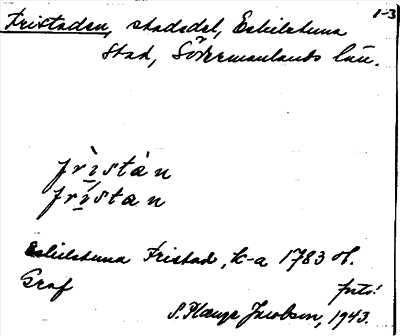 1-3
Fristaden, stadsdel, Eskilstuna
stad, Södermanlands län.
frìstàn
frístan
Eskilstuna Fristad, k-a 1783 of.
Graf
S. Hauge Jacobson, 1943.